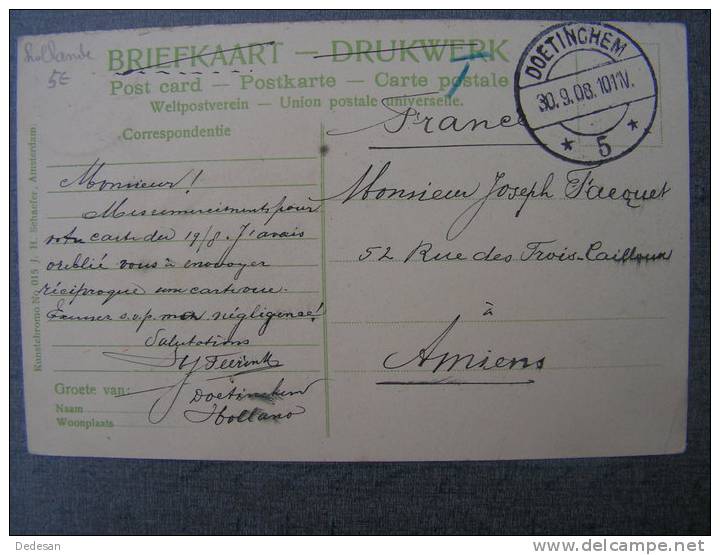 hollande
5€
BRIEFKAART — DRUKWERK
Post card — Postkarte — Carte postale
Weltpostverein — Union postale universelle.
Correspondentie
DOETINCHEM
30.9.08. 1011V.
* 5 *
T
France
Monsieur!
Mes remerciments pour
votre carte du 19/8. J'avais
oublié vous à envoyer
réciproque une cartevue.
Excusez s.v.p. mon négligence!
Salutations
Doetinchem
Holland
Monsieur Joseph Facquet
52 Rue des Trois-Cailloux
à
Amiens
Groete van:
Naam
Woonplaats
Kunstchromo No. 015 J. H. Schaefer, Amsterdam.
Dedesan
delcampe.net